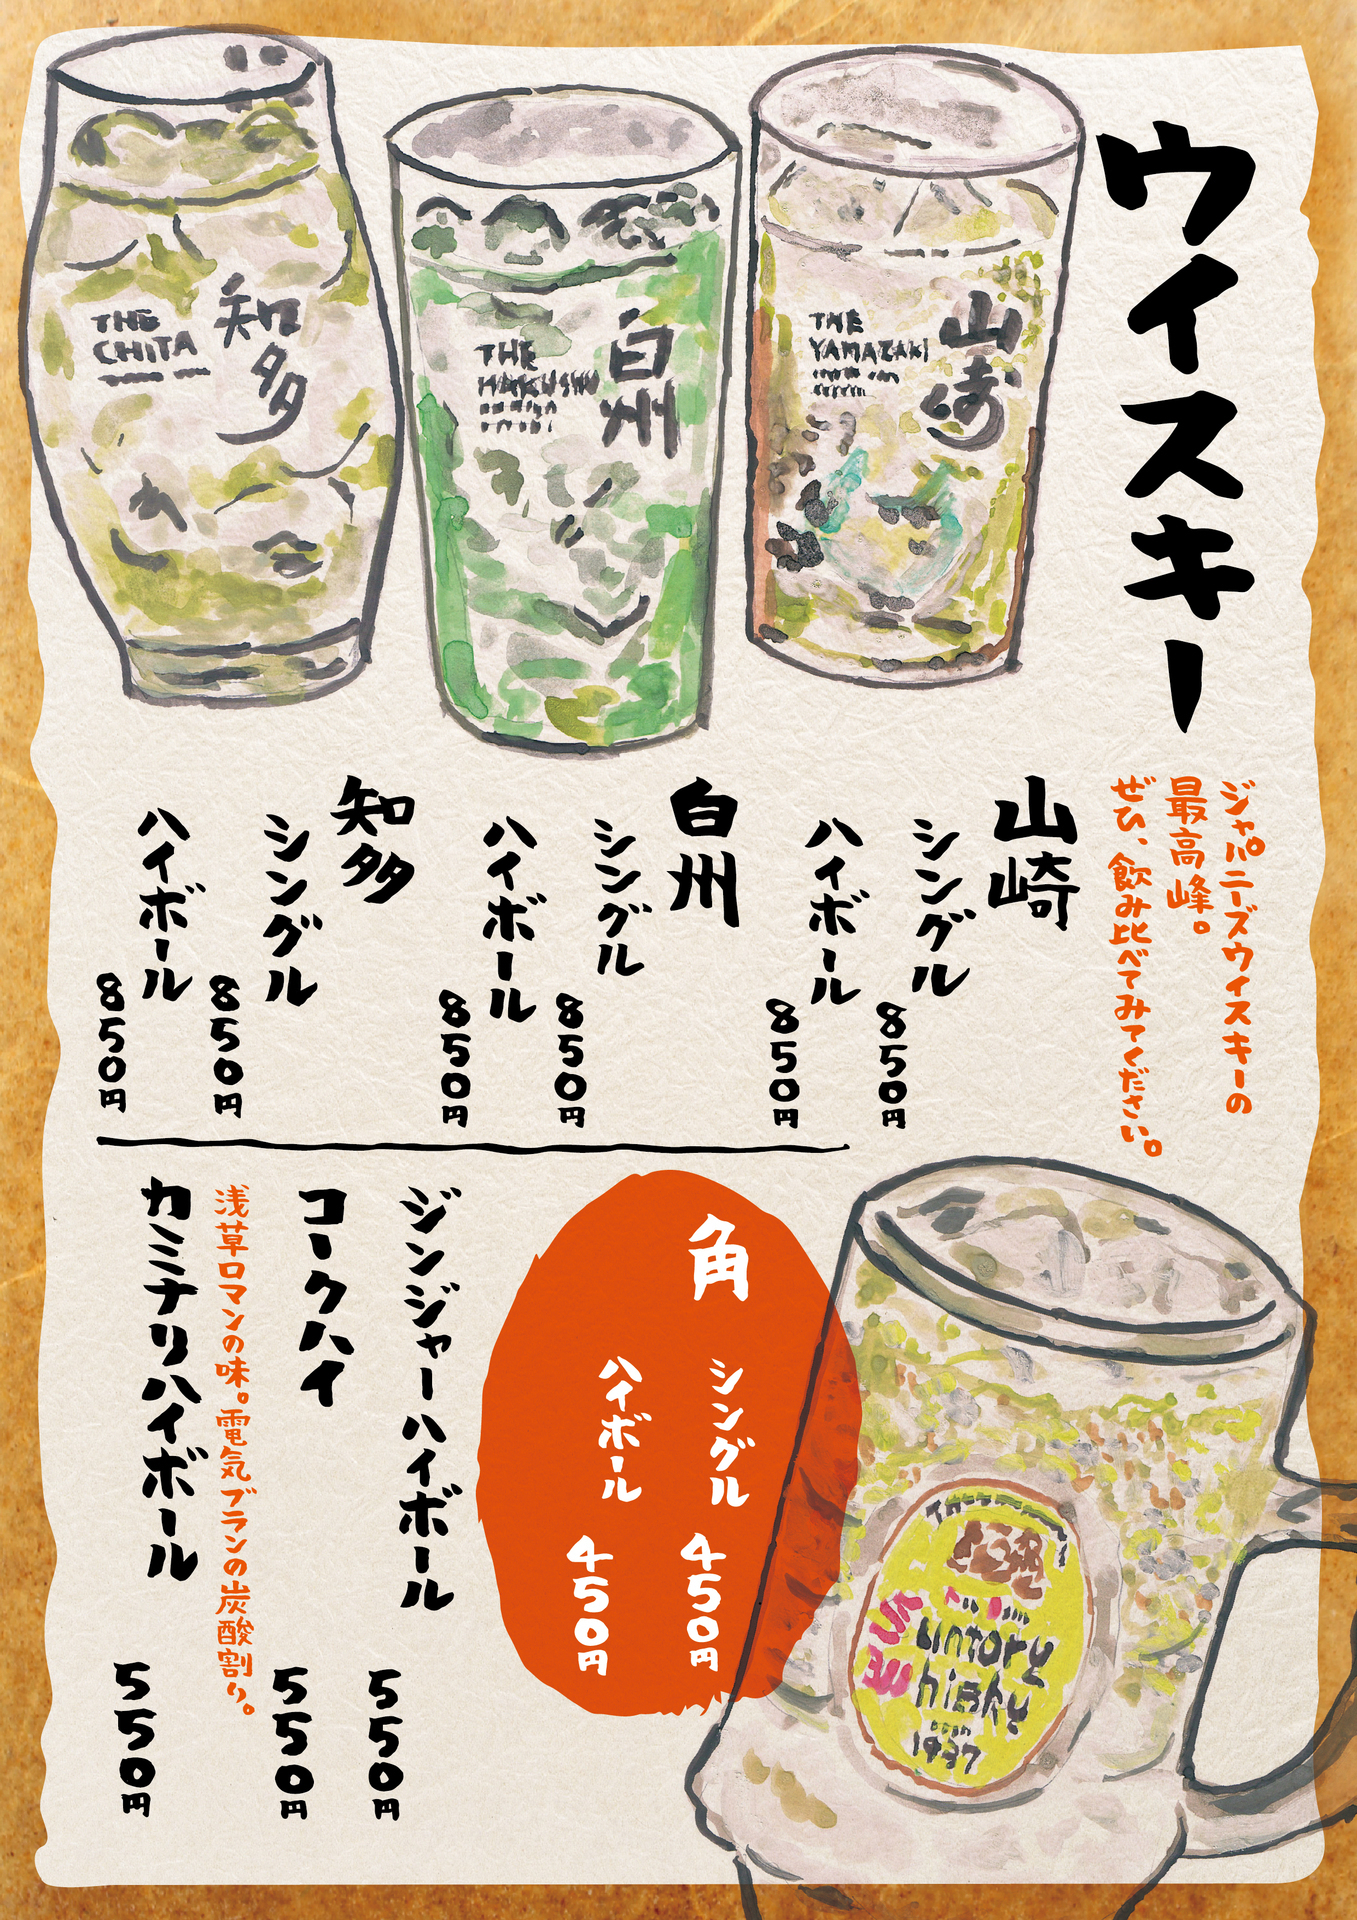 ウイスキー
ジャパニーズウイスキーの
最高峰。
ぜひ、飲み比べてみてください。
THE
YAMAZAKI
山崎
THE
HAKUSHU
白州
THE
CHITA
知多
山崎
シングル
850円
ハイボール
850円
白州
シングル
850円
ハイボール
850円
知多
シングル
850円
ハイボール
850円
角
シングル
450円
ハイボール
450円
Suntory
Whisky
1937
ジンジャーハイボール
550円
コークハイ
550円
浅草ロマンの味。電気ブランの炭酸割り。
カミナリハイボール
550円